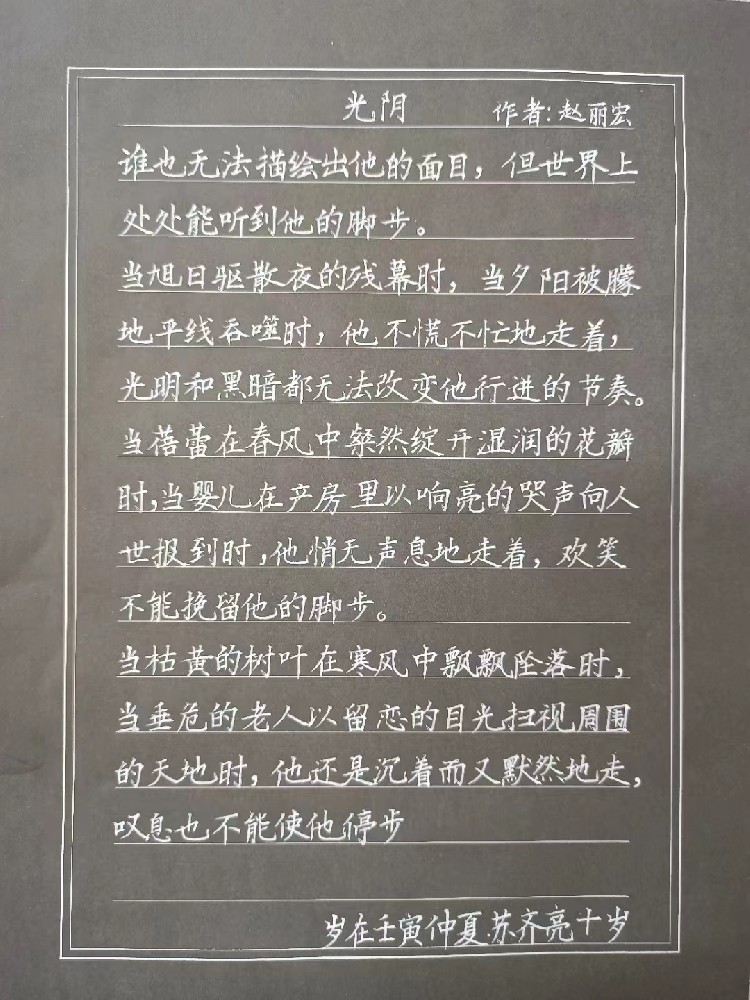 光阴
作者:赵丽宏
谁也无法描绘出他的面目，但世界上
处处能听到他的脚步。
当旭日驱散夜的残幕时，当夕阳被朦
地平线吞噬时，他不慌不忙地走着，
光明和黑暗都无法改变他行进的节奏。
当蓓蕾在春风中粲然绽开湿润的花瓣
时,当婴儿在产房里以响亮的哭声向人
世报到时,他悄无声息地走着，欢笑
不能挽留他的脚步。
当枯黄的树叶在寒风中飘飘坠落时，
当垂危的老人以留恋的目光扫视周围
的天地时，他还是沉着而又默然地走，
叹息也不能使他停步
岁在壬寅仲夏.苏齐亮十岁